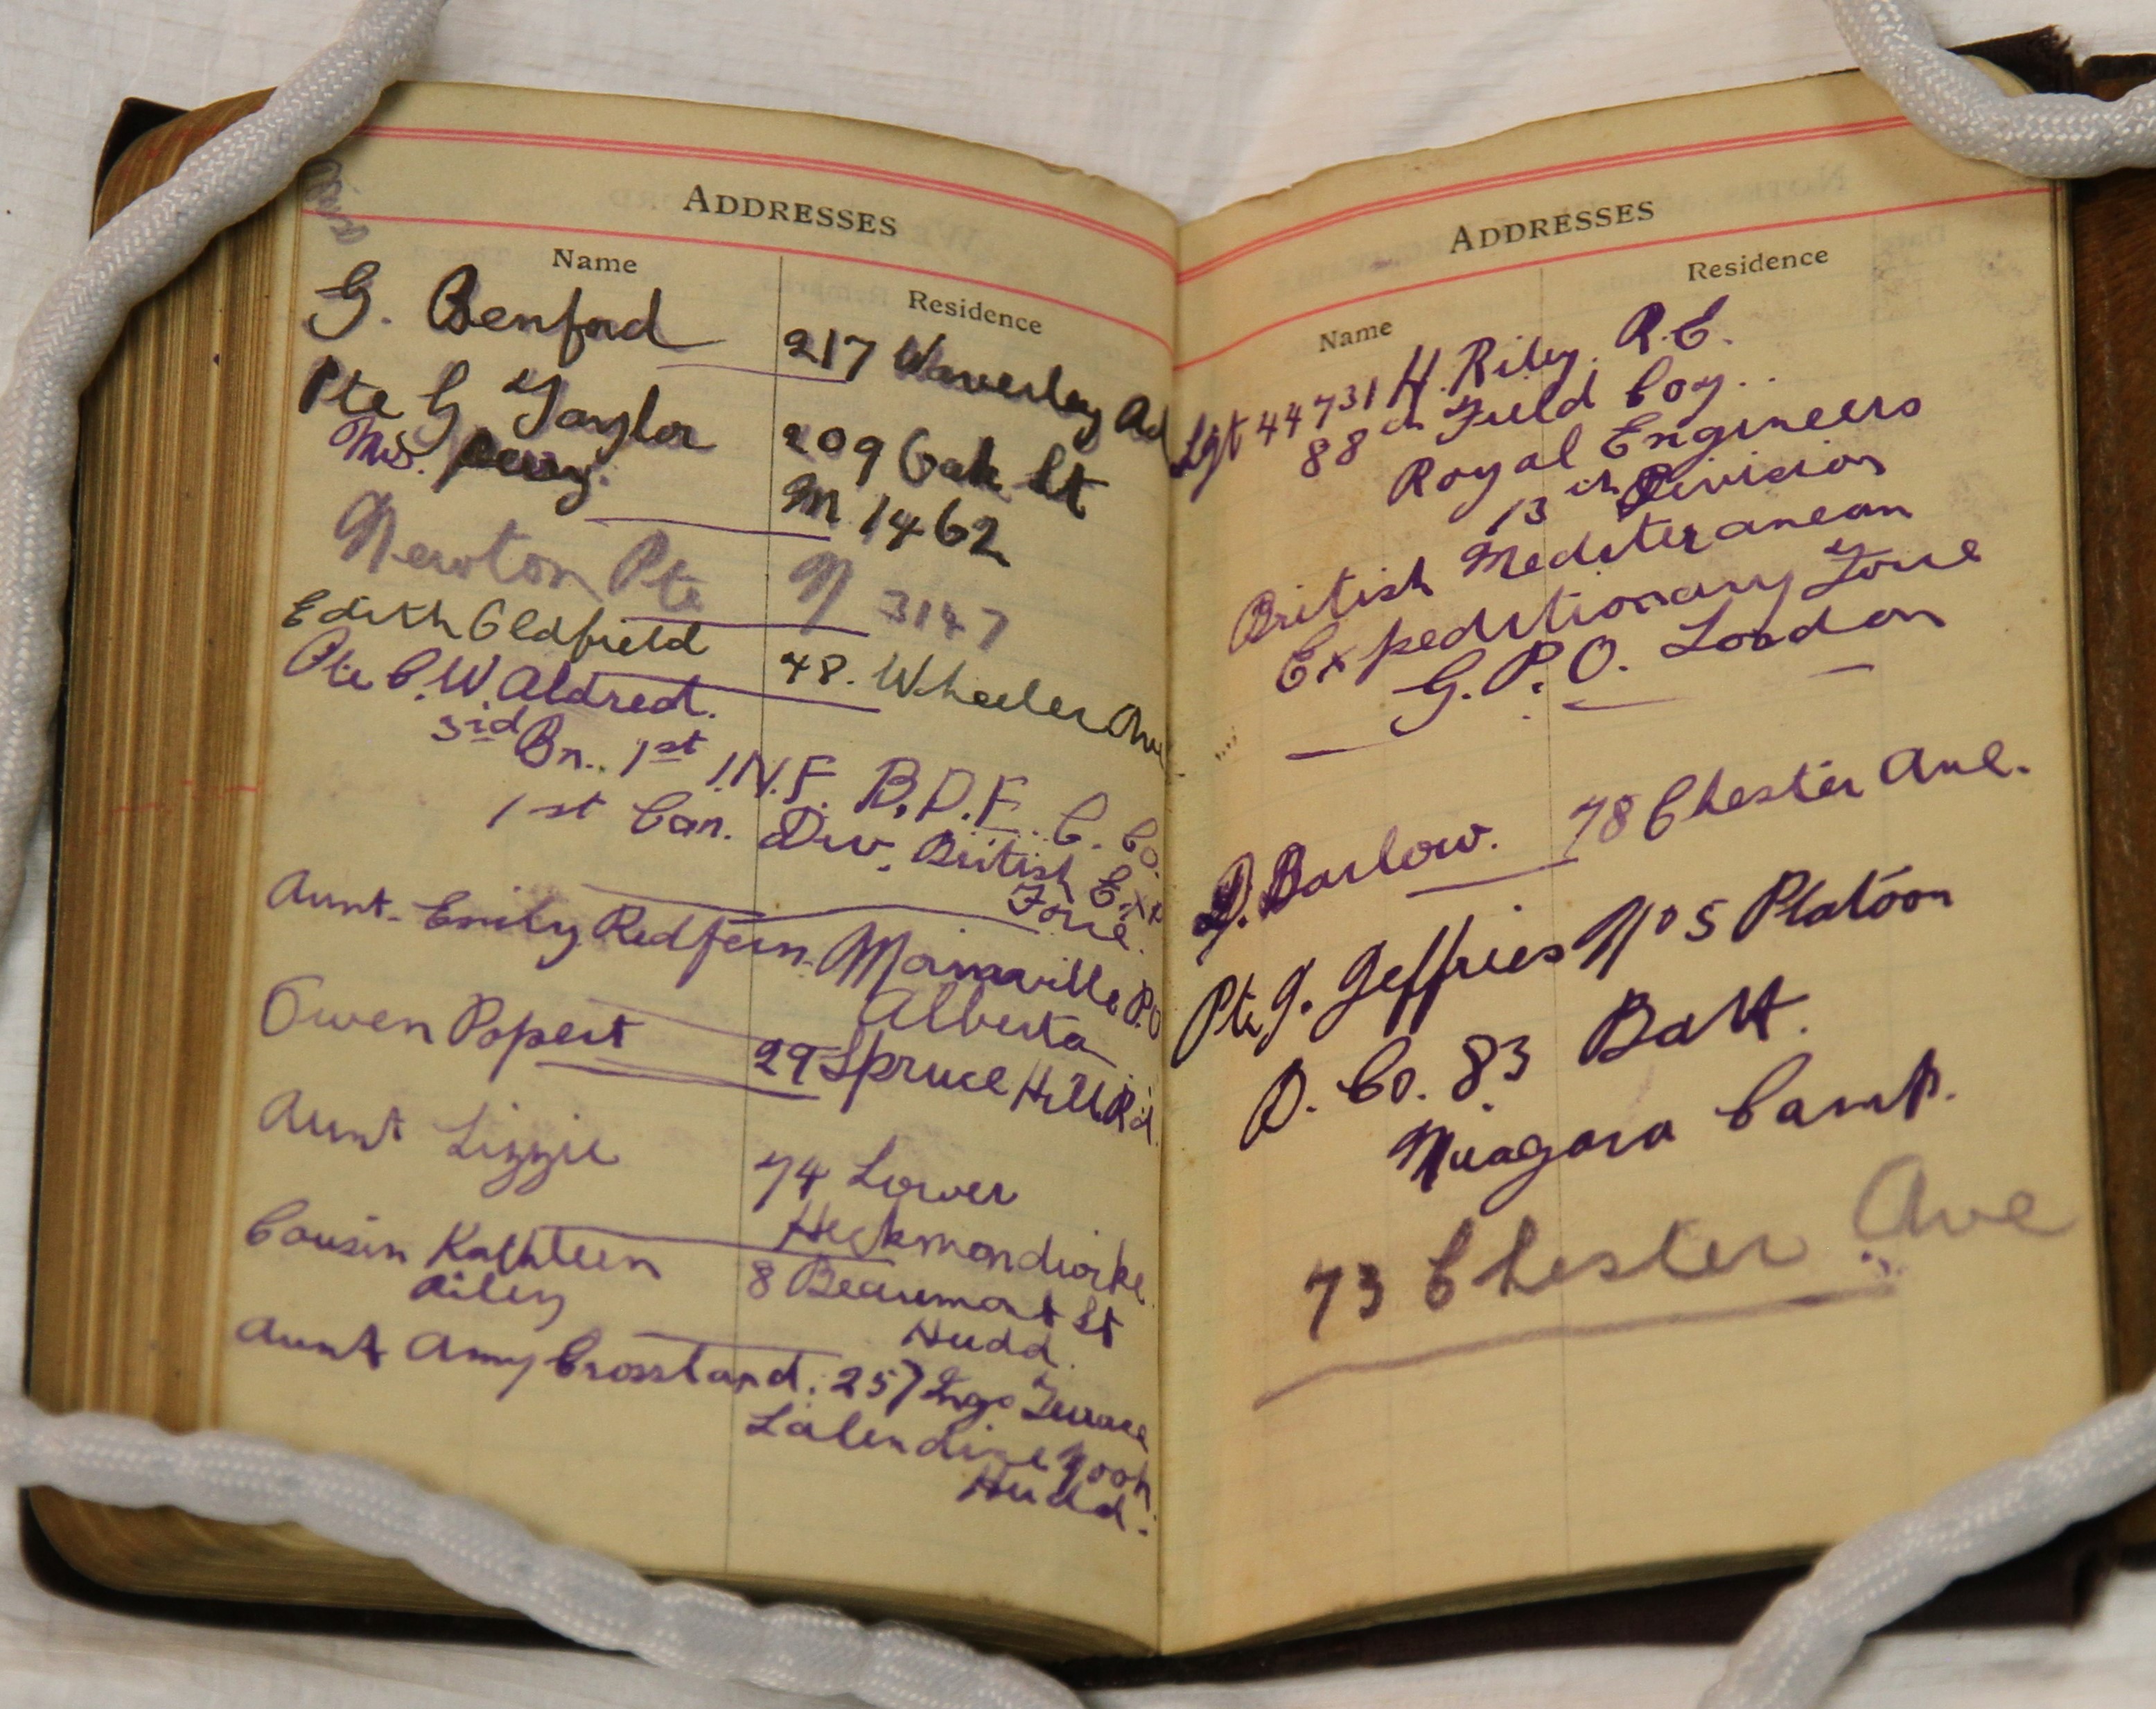 ADDRESSES
Name Residence
G. Benford 217 Waverley Rd
Pte G Taylor 209 Oak St
Mrs. Perry. M 1462
Newton Pte N 3147
Edith Oldfield 48. Wheeler Ave
Pte C. W Aldred.
3rd Bn. 1st I.N.F. B.D.F. C. Co.
1st Can. Div. British Exp
Force.
Aunt Emily Redfern Mannville P.O
Alberta
Owen Popert 29 Spruce Hill Rd.
Aunt Lizzie 74 Lower
Heckmondwike
Cousin Kathleen 8 Beaumont St
Riley Hudd.
Aunt Amy Crossland. 257 Terrace
Hudd.
ADDRESSES
Name Residence
Sgt 44731 H. Riley. R.E.
88th Field Coy.
Royal Engineers
13th Division
British Mediteranean
Expeditionary Force
G.P.O. London
D. Barlow. 78 Chester Ave.
Pte J. Jeffries No 5 Platoon
D. Co. 83 Batt.
Niagara Camp.
73 Chester Ave